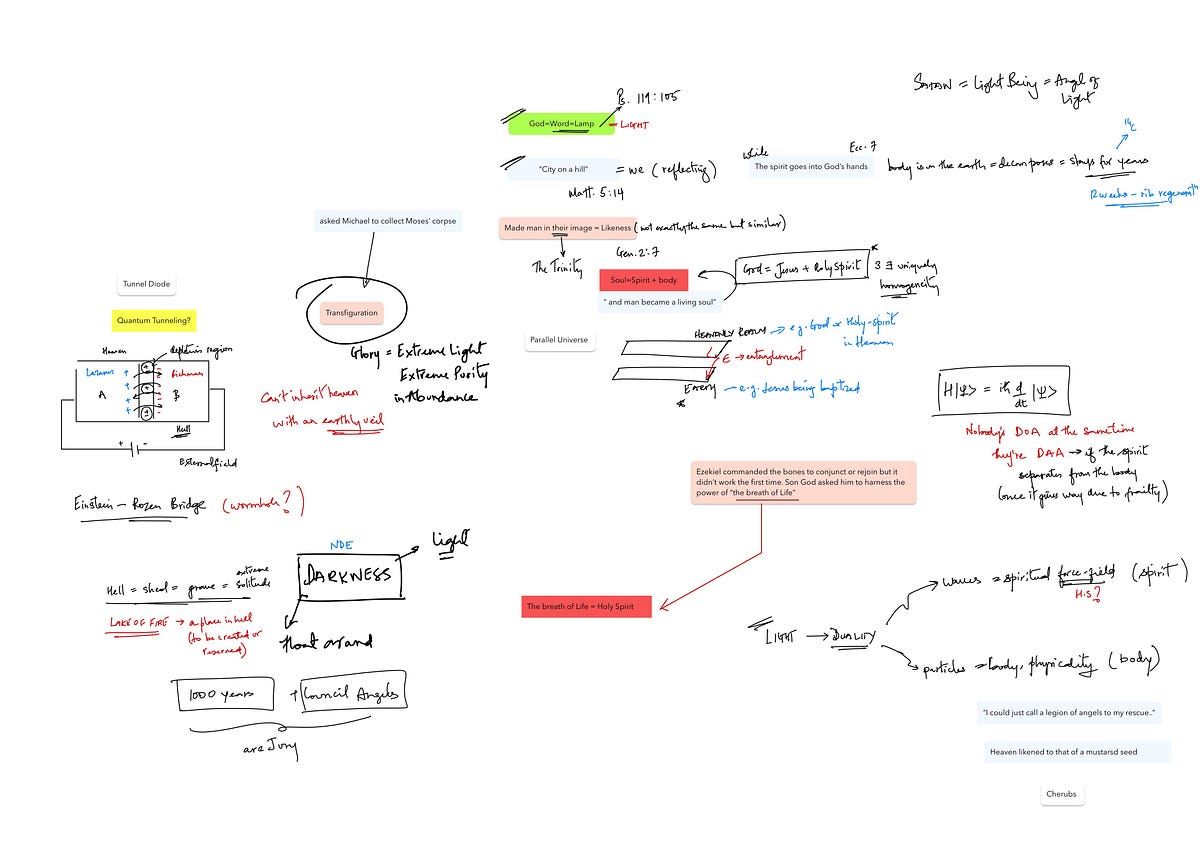 Satan = Light Being = Angel of
Light
Ps. 119:105
God=Word=Lamp
LIGHT
14C
"City on a hill"
= we (reflecting)
Matt. 5:14
while
Ecc. 7
The spirit goes into God's hands
body is in the earth = decomposes = stays for years
12 weeks - rib regenerath
asked Michael to collect Moses' corpse
Made man in their image = Likeness
(not exactly the same but similar)
The Trinity
Gen. 2:7
Soul=Spirit + body
" and man became a living soul"
God = Jesus + Holy Spirit
3 ∃ uniquely
homogeneity
Tunnel Diode
Quantum Tunneling?
Transfiguration
Glory = Extreme Light
Extreme Purity
in Abundance
Can't inherit heaven
with an earthly veil
Parallel Universe
HEAVENLY REALM
e.g. God or Holy-spirit
in Heaven
E → entanglement
EARTH
e.g. Jesus being baptized
Heaven
depletion region
Lazarus
Richman
A
B
Hell
+ -
External field
H|Ψ> = iħ d/dt |Ψ>
Nobody's DOA at the same time
they're DAA → if the spirit
separates from the body
(once it gives way due to frailty)
Ezekiel commanded the bones to conjunct or rejoin but it
didn't work the first time. Son God asked him to harness the
power of "the breath of Life"
Einstein - Rozen Bridge (wormhole?)
NDE
DARKNESS
Light
float around
Hell = sheol = grave = extreme
solitude
LAKE OF FIRE → a place in hell
(to be created or
reserved)
The breath of Life = Holy Spirit
LIGHT → DUALITY
waves = spiritual force-field (spirit)
H.S?
particles = body, physicality (body)
1000 years
+ Council Angels
are Jury
"I could just call a legion of angels to my rescue.."
Heaven likened to that of a mustarsd seed
Cherubs